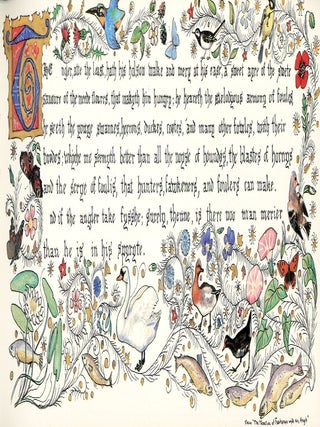 THE ngler, atte the leest, hath his holsom walke and mery at his ease, a sweet ayre of the swete
savoure of the meede floures, that makyth him hungry; he heareth the melodyous armony of foules,
he seeth the yonge swannes, herons, duckes, cootes, and many other fowles, with their
brodes; whiche me semyth better than all the noyse of houndys, the blastes of hornys
and the scrye of foulis, that hunters, fawkeners, and foulers can make.
nd if the angler take fysshe; surely, thenne, is there noo man merier
than he is in his spyryte.
From "The Treatise of Fishynge with an Angle"